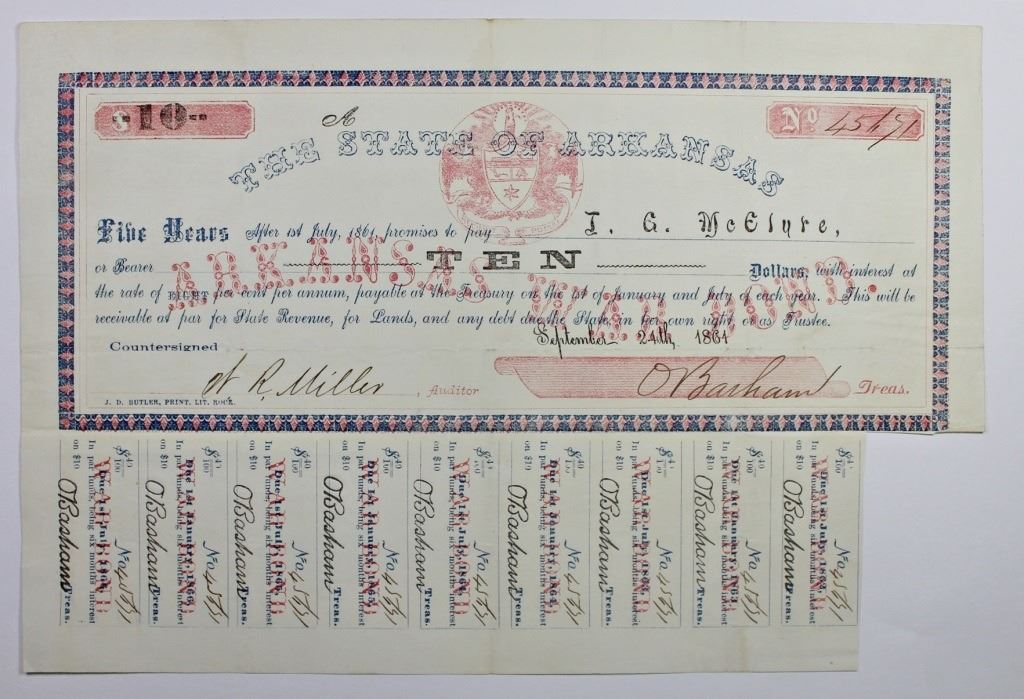 $ 10 A No
THE STATE OF ARKANSAS
Five Years After 1st July, 1861, promises to pay
or Bearer TEN Dollars, with interest at
ARKANSAS WAR BOND.
the rate of EIGHT per cent per annum, payable at the Treasury on the 1st of January and July of each year. This will be
receivable at par for State Revenue, for Lands, and any debt due the State, in her own right or as Trustee.
September 24th, 1861
Countersigned
Miller, Auditor O Basham Treas.
J. D. BUTLER, PRINT, LIT. ROCK.
$ 40/100 No
Due 1st July, 1866,
In par funds, being six months interest
on $10 O Basham Treas.
$ 40/100 No
Due 1st January, 1866,
In par funds, being six months interest
on $10 O Basham Treas.
$ 40/100 No
Due 1st July, 1865,
In par funds, being six months interest
on $10 O Basham Treas.
$ 40/100 No
Due 1st January, 1865,
In par funds, being six months interest
on $10 O Basham Treas.
$ 40/100 No
Due 1st July, 1864,
In par funds, being six months interest
on $10 O Basham Treas.
$ 40/100 No
Due 1st January, 1864,
In par funds, being six months interest
on $10 O Basham Treas.
$ 40/100 No
Due 1st July, 1863,
In par funds, being six months interest
on $10 O Basham Treas.
$ 40/100 No
Due 1st January, 1863,
In par funds, being six months interest
on $10 O Basham Treas.
$ 40/100 No
Due 1st July, 1862,
In par funds, being six months interest
on $10 O Basham Treas.